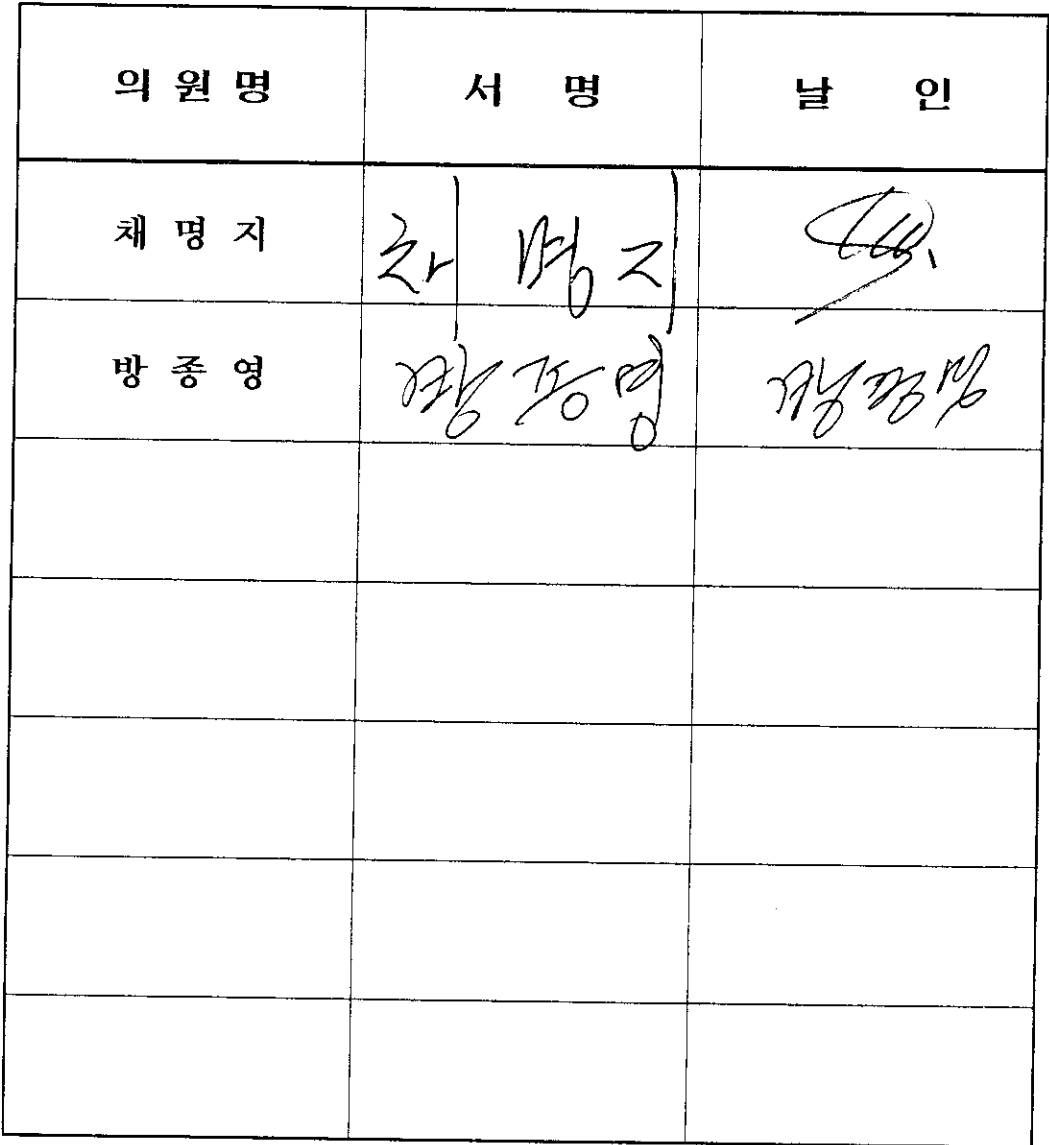 의 원 명 서 명 날 인
채 명 지 채 명 지
방 종 영 방 종 영 방 종 영